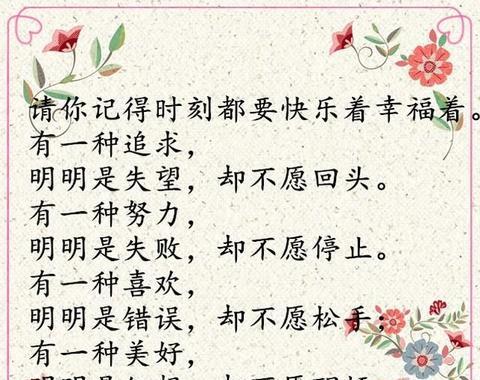 请你记得时刻都要快乐着幸福着。
有一种追求，
明明是失望，却不愿回头。
有一种努力，
明明是失败，却不愿停止。
有一种喜欢，
明明是错误，却不愿松手；
有一种美好，